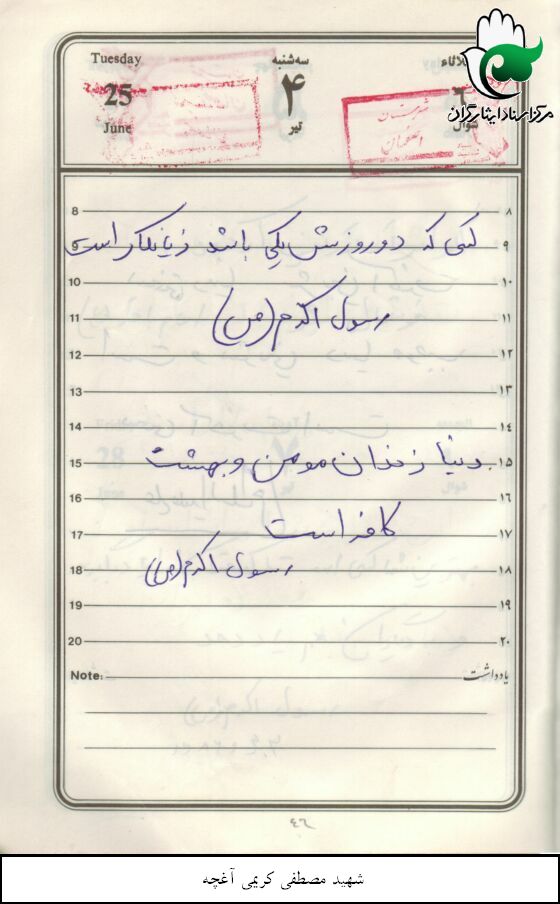 Tuesday سه‌شنبه
25 ۴
June تیر شوال
مرکز اسناد ایثارگران
شهرستان
اصفهان
8 ۸
9 کسی که دو روزش یکی باشد زیانکار است ۹
10 ۱۰
11 رسول اکرم (ص) ۱۱
12 ۱۲
13 ۱۳
14 ۱۴
15 دنیا زندان مومن و بهشت ۱۵
16 ۱۶
17 کافر است ۱۷
18 رسول اکرم (ص) ۱۸
19 ۱۹
20 ۲۰
Note: یادداشت
شهید مصطفی کریمی آغچه